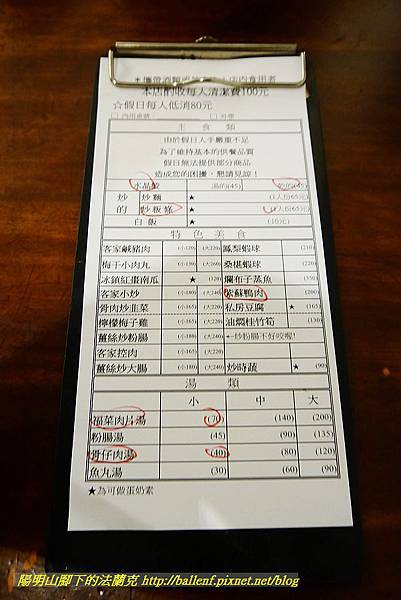 本店酌收每人清潔費100元
☆假日每人低消80元
主食類
由於假日人手嚴重不足
為了維持基本的供餐品質
假日無法提供部分商品
造成您的困擾，懇請見諒！
水晶餃 湯的(45) 乾的(45)
炒 炒麵 ★ (1人份65元)
的 炒粄條 ★ (1人份65元)
白飯 ★ (10元)
特色美食
客家鹹豬肉 (小120) (大220) 鳳梨蝦球 (210)
梅干小肉丸 (小130) (大240) 桑椹蝦球 (220)
冰鎮紅棗南瓜 ★ (120) 爛布子蒸魚 (150)
客家小炒 (小180) (大240) 紫蘇鴨肉 (200)
骨肉炒韭菜 (小165) (大220) 私房豆腐 ★ (165)
檸檬梅子雞 (小165) (大220) 油燜桂竹筍 (130)
薑絲炒粉腸 (小180) (大240) ←炒粉腸不好咬喔!
客家控肉 (小165) (大220)
薑絲炒大腸 (小180) (大240) 炒時蔬 ★ (90)
湯類
小 中 大
福菜肉片湯 (70) (140) (200)
粉腸湯 (45) (90) (135)
骨仔肉湯 (40) (80) (120)
魚丸湯 (30) (60) (90)
★為可做蛋奶素
陽明山腳下的法蘭克 http://ballenf.pixnet.net/blog